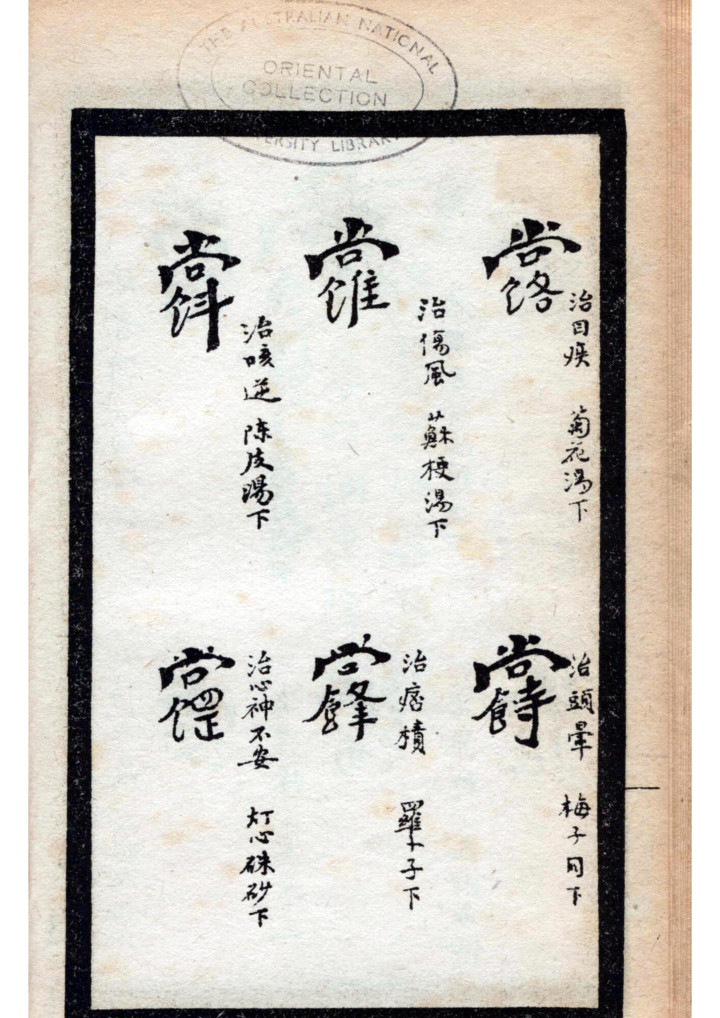 THE AUSTRALIAN NATIONAL
UNIVERSITY LIBRARY
ORIENTAL
COLLECTION
治目疾 菊花湯下
治傷風 蘇梗湯下
治咳逆 陈皮湯下
治頭暈 梅子同下
治痞積 羅卜子下
治心神不安 灯心硃砂下